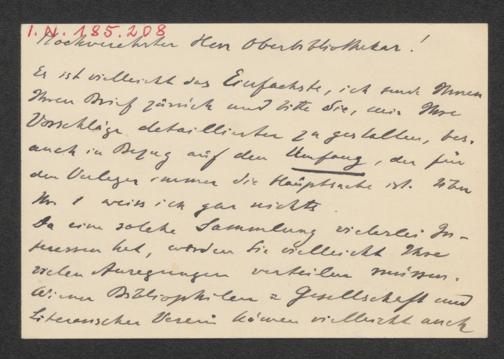 I.N. 185.208
Hochverehrter Herr Oberbibliothekar!
Es ist vielleicht das Einfachste, ich sende Ihnen
Ihren Brief zurück und bitte Sie, mir Ihre
Vorschläge detaillierter zu gestalten, bes.
auch in Bezug auf den Umfang, der für
den Verleger immer die Hauptsache ist. Über
Nr 1 weiss ich gar nichts.
Da eine solche Sammlung vielerlei In-
teressen hat, werden Sie vielleicht Ihre
vielen Anregungen verteilen müssen.
Wiener Bibliophilen = Gesellschaft und
Literarischer Verein können vielleicht auch